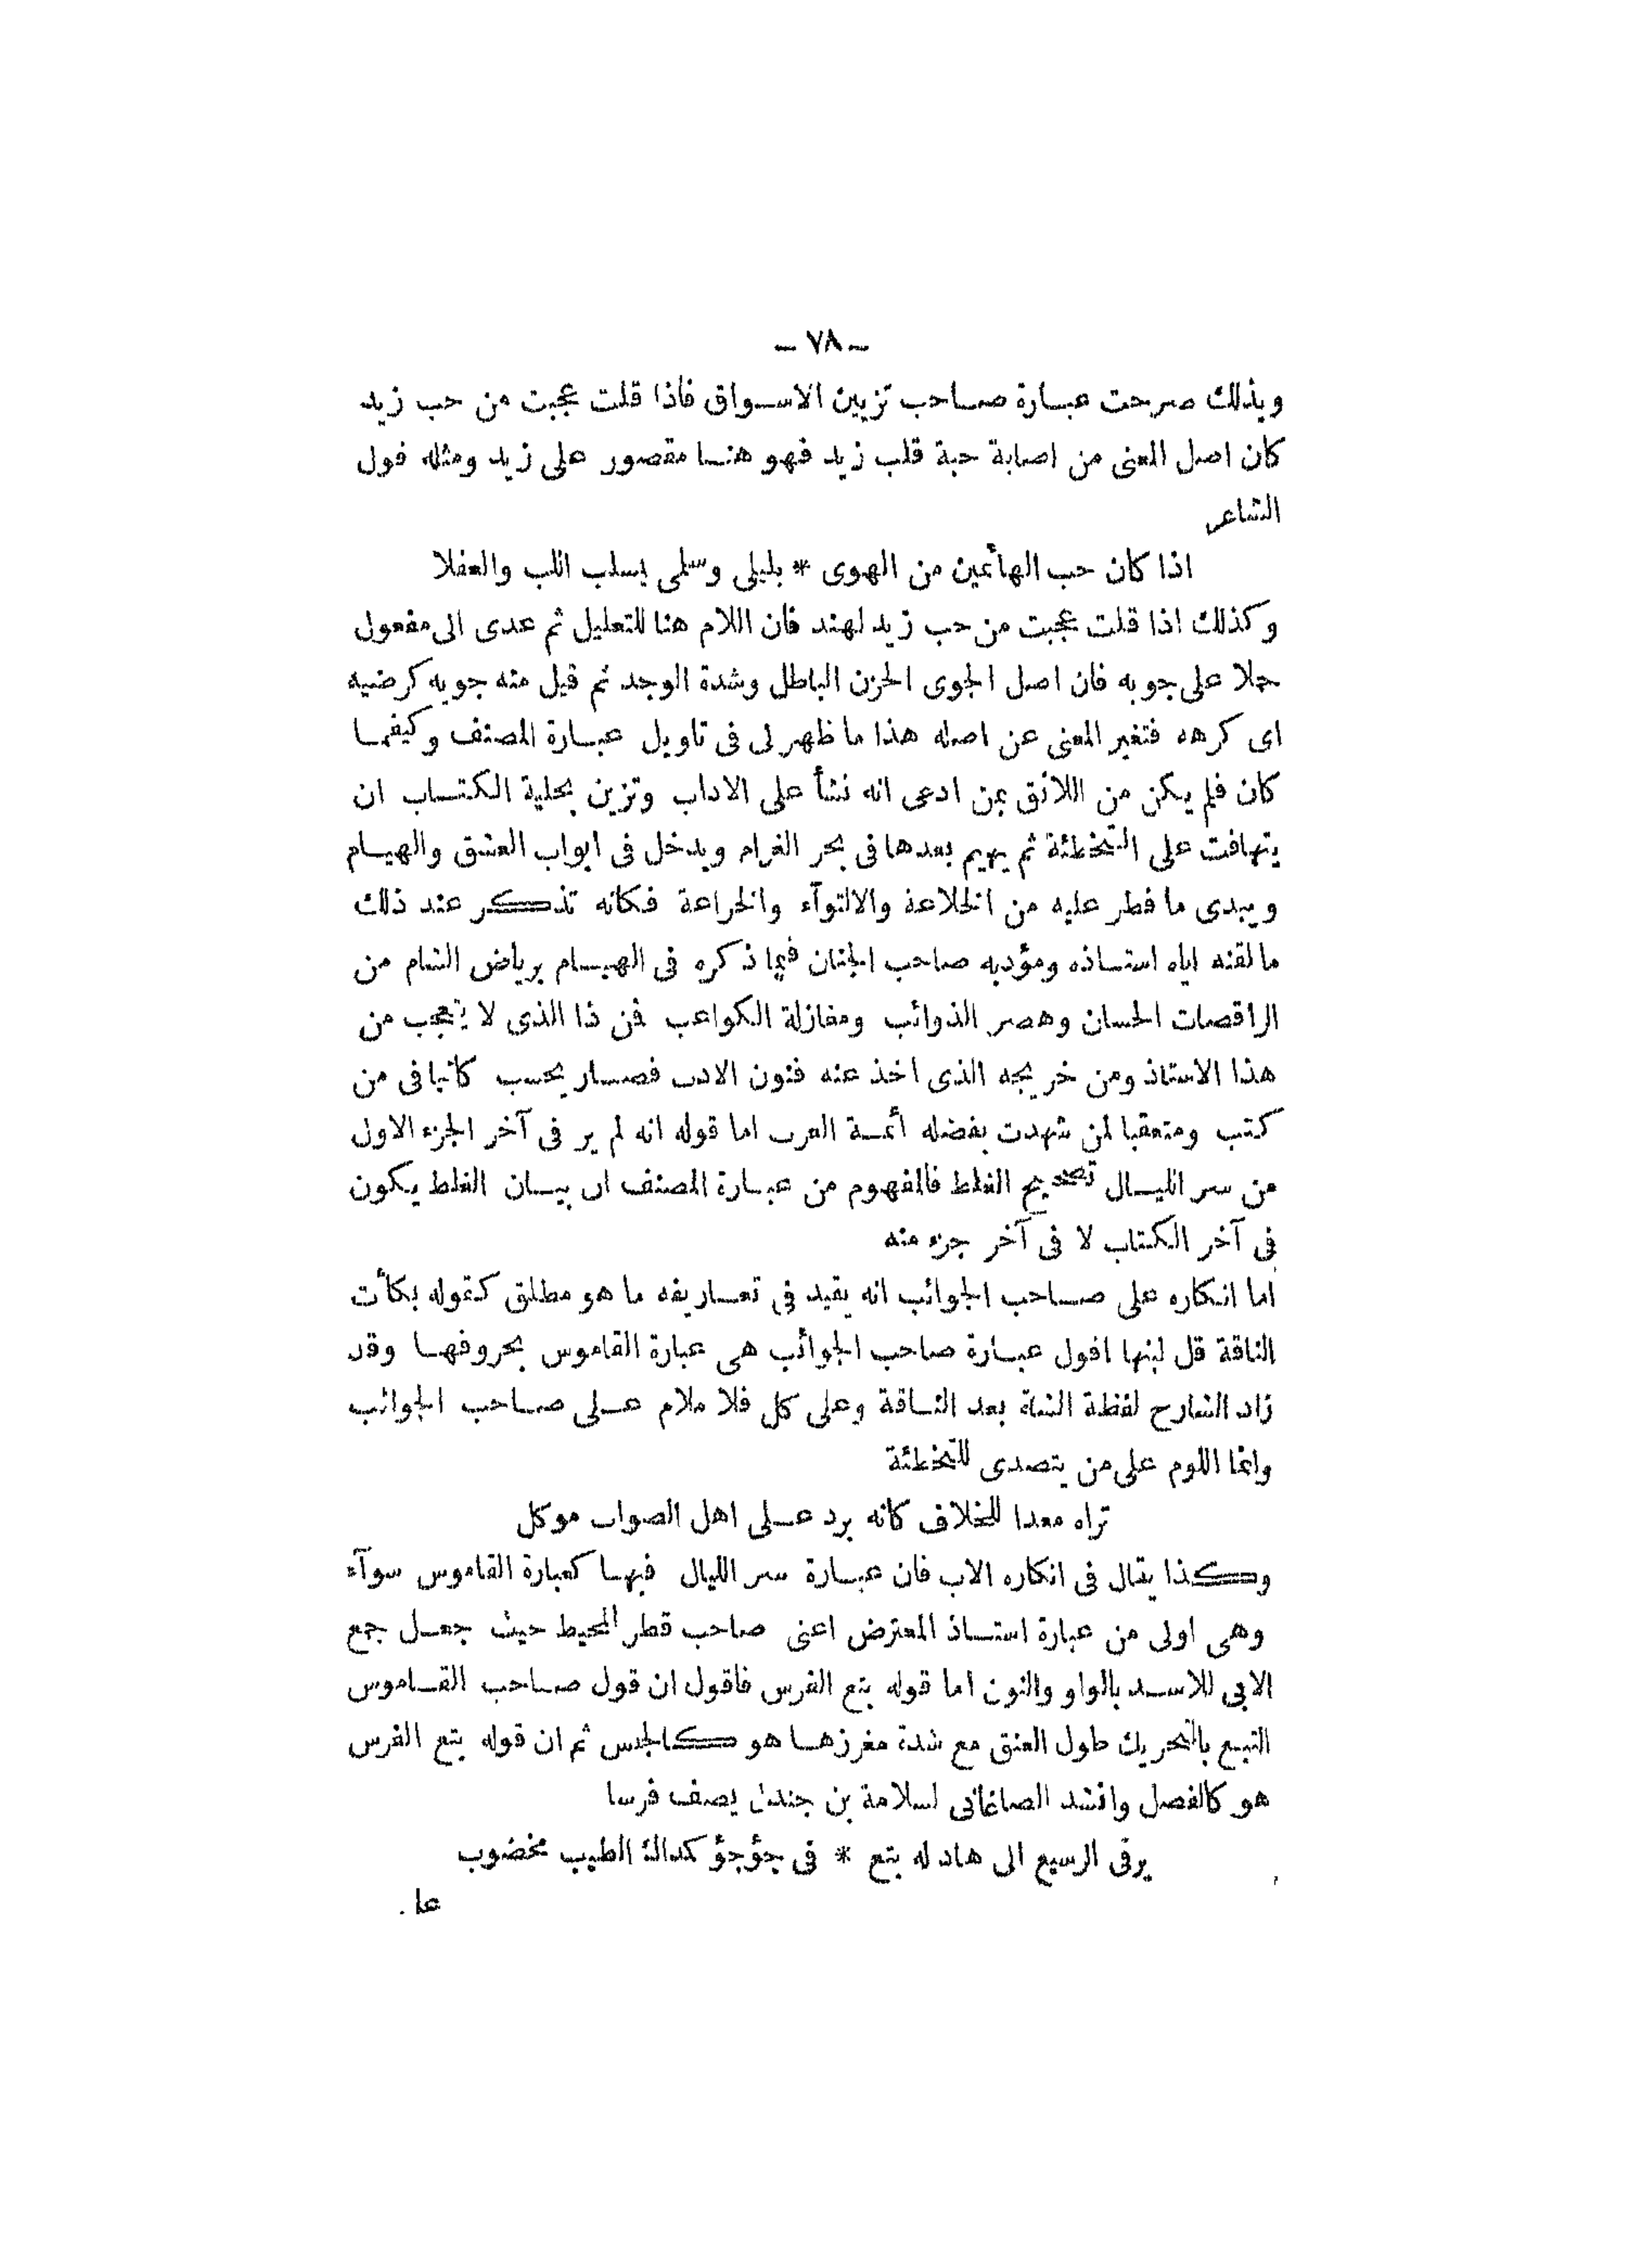 ـ ٧٨ ـ
وبذلك صرحت عبارة صاحب تزيين الاسواق فاذا قلت عجبت من حب زيد
كان اصل المعنى من اصابة حبة قلب زيد فهو هنا مقصور على زيد ومثله قول
الشاعر
اذا كان حب الهائمين من الهوى * بليلى وسلمى يسلب اللب والعقلا
وكذلك اذا قلت عجبت من حب زيد لهند فان اللام هنا للتعليل ثم عدى الى مفعول
حملا على جويه فان اصل الجوى الحزن الباطل وشدة الوجد ثم قيل منه جويه كرضيه
اى كرهه فتغير المعنى عن اصله هذا ما ظهر لى فى تاويل عبارة المصنف وكيفما
كان فلم يكن من اللائق بمن ادعى انه نشأ على الاداب وتزين بحلية الكتاب ان
يتهافت على التخطئة ثم يهيم بعدها فى بحر الغرام ويدخل فى ابواب العشق والهيام
ويبدى ما فطر عليه من الخلاعة والالتوآء والخراعة فكانه تذكر عند ذلك
ما لقنه اياه استاذه ومؤدبه صاحب الجنان فيما ذكره فى الهيام برياض الشام من
الراقصات الحسان وهصر الذوائب ومغازلة الكواعب فمن ذا الذى لا يتعجب من
هذا الاستاذ ومن خريجه الذى اخذ عنه فنون الادب فصار يحسب كاتبا فى من
كتب ومتعقبا لمن شهدت بفضله أئمة العرب اما قوله انه لم ير فى آخر الجزء الاول
من سر الليال تصحيح الغلط فالمفهوم من عبارة المصنف ان بيان الغلط يكون
فى آخر الكتاب لا فى آخر جزء منه
اما انكاره على صاحب الجوائب انه يقيد فى تعاريفه ما هو مطلق كقوله بكأت
الناقة قل لبنها اقول عبارة صاحب الجوائب هى عبارة القاموس بحروفها وقد
زاد الشارح لفظة الشاة بعد الناقة وعلى كل فلا ملام على صاحب الجوائب
وانما اللوم على من يتصدى للتخطئة
تراه معدا للخلاف كانه برد على اهل الصواب موكل
وكذا يقال فى انكاره الاب فان عبارة سر الليال فيها كعبارة القاموس سوآء
وهى اولى من عبارة استاذ المعترض اعنى صاحب قطر المحيط حيث جعل جمع
الابى للاسد بالواو والنون اما قوله بتع الفرس فاقول ان قول صاحب القاموس
البتع بالتحريك طول العنق مع شدة مغرزها هو كالجنس ثم ان قوله بتع الفرس
هو كالفصل وانشد الصاغانى لسلامة بن جندل يصف فرسا
يرقى الرسيع الى هاد له بتع * فى جؤجؤ كمداك الطيب مخضوب